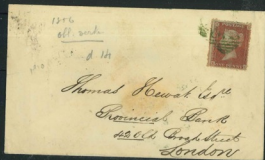 1856
Thomas Hewat Esqre
Provincial Bank
42 Old Broad Street
London